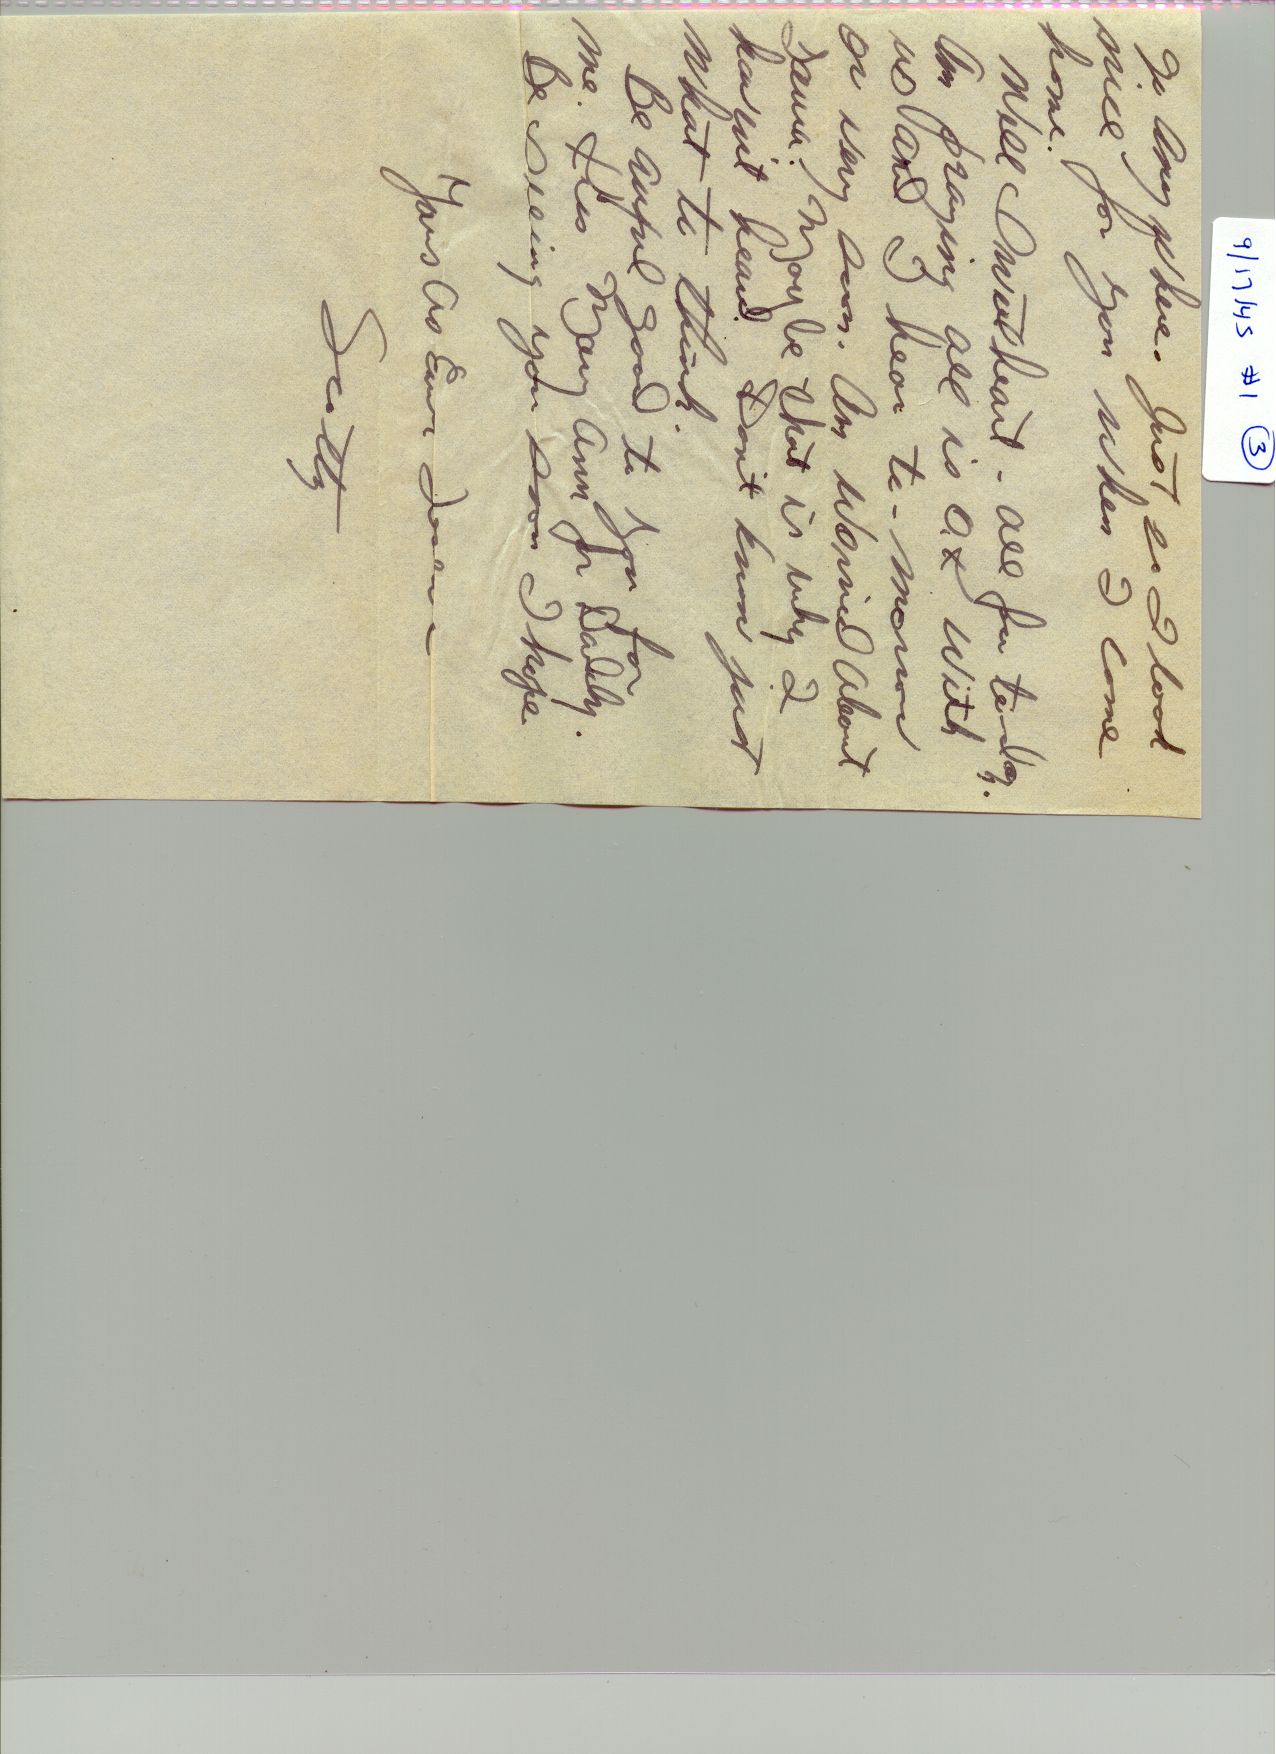 9/17/45 #1 3
to any where. Just so I look
nice for you when I come
home.
Well Sweetheart - all for to-day.
Am praying all is O.K. with
us and I hear to-morrow
or very soon. Am worried about
Maybe that is why I
havent heard. Don't know just
what to think.
Be awful good to you for
me. Kiss Mary Ann for Daddy.
Be seeing you soon I hope
Yours as Ever
Scotty